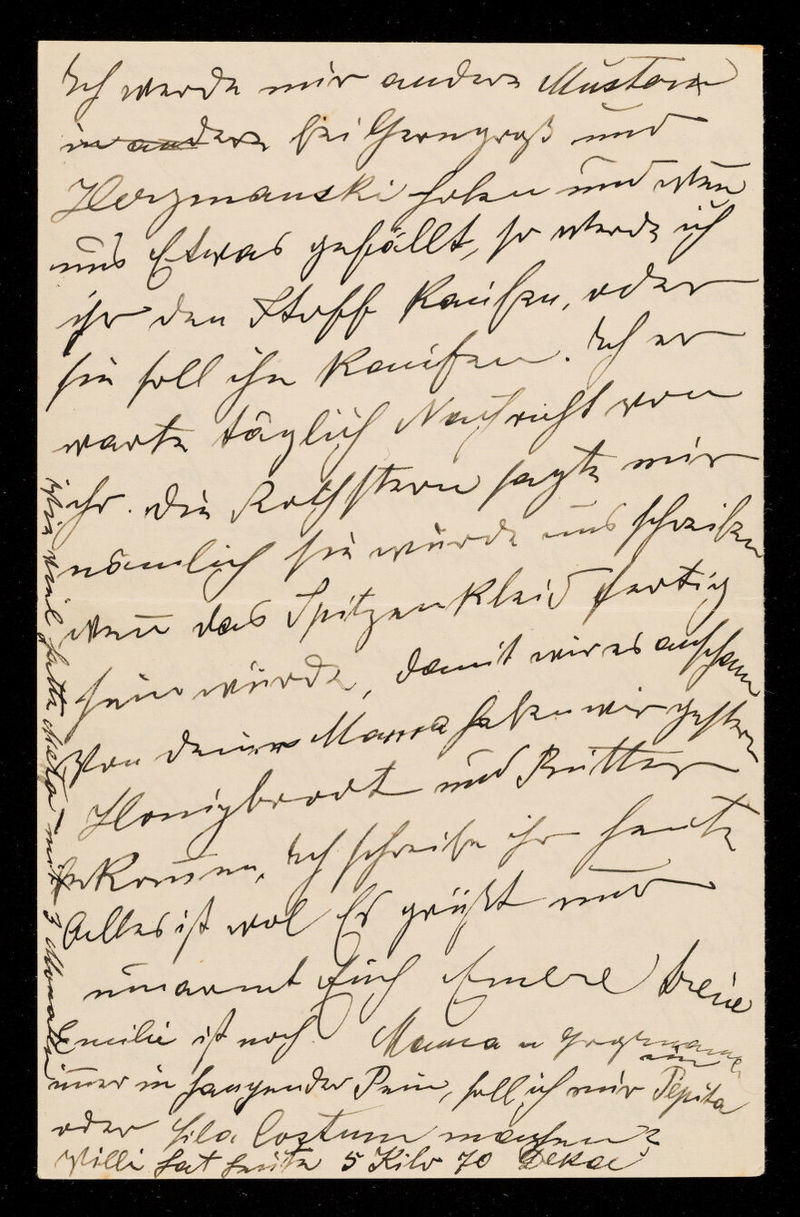 Ich werde mir andere Mustern
in andere bei Gerngroß und
Herzmanski holen und wen̅
uns Etwas gefällt, so werde ich
ihr den Stoff kaufen, oder
sie soll ihn kaufen. Ich er
warte täglich Nachricht von
ihr. Die Rothstern sagte mir
nämlich sie würde uns schreiben
wen̅ das Spitzenkleid fertig
sein würde, damit wir es anschauen
Von deiner Mama haben wir gestern
Honigbrodt und Butter
bekom̅en, Ich schreibe ihr heute
Alles ist wol Es grüßt und
umarmt Euch Euere treue
Mama u Großmama
Emilie ist noch
im̅er in hangender Pein, soll ich mir ein Pepita
oder lila Costum machen?
Willi hat heute 5 Kilo 70 Deka
Wie viel hatte Meta mit 3 Monaten